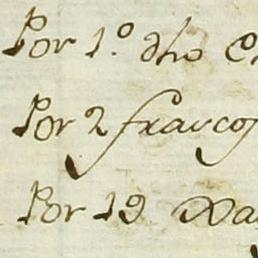 Por 1.º dho
Por 2 francos
Por 19